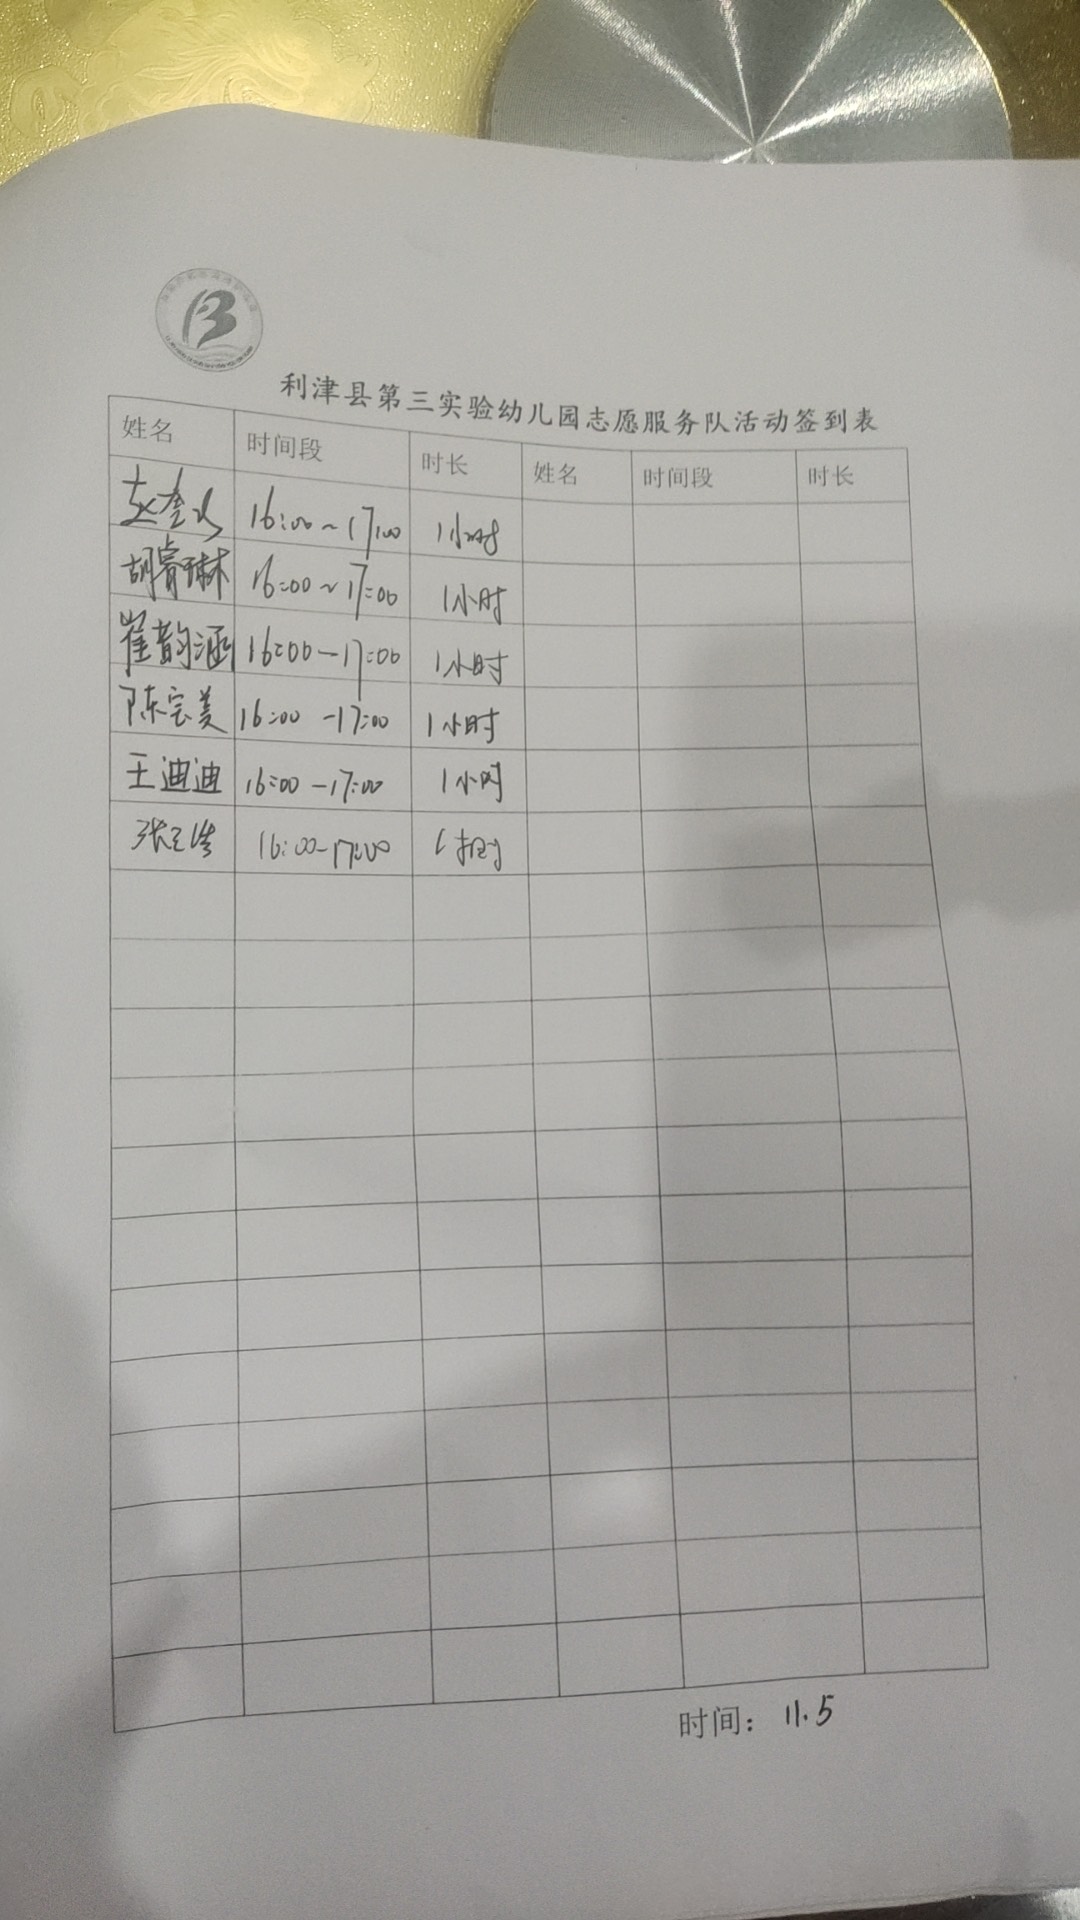 利津县第三实验幼儿园志愿服务队活动签到表
姓名 时间段 时长 姓名 时间段 时长
16:00~17:00 1小时
胡睿琳 16:00~17:00 1小时
崔韵涵 16:00-17:00 1小时
陈宗美 16:00-17:00 1小时
王迪迪 16:00-17:00 1小时
16:00-17:00 1小时
时间: 11.5